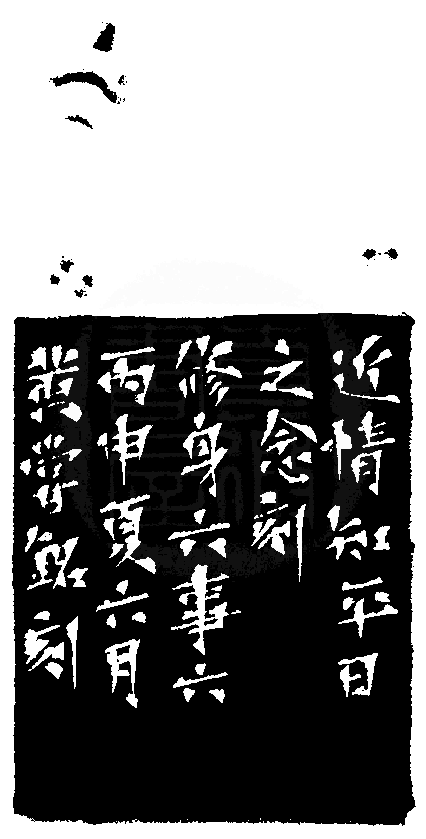 近情知平日
之念刻
修身六事六
丙申夏六月
黄嘗銘刻